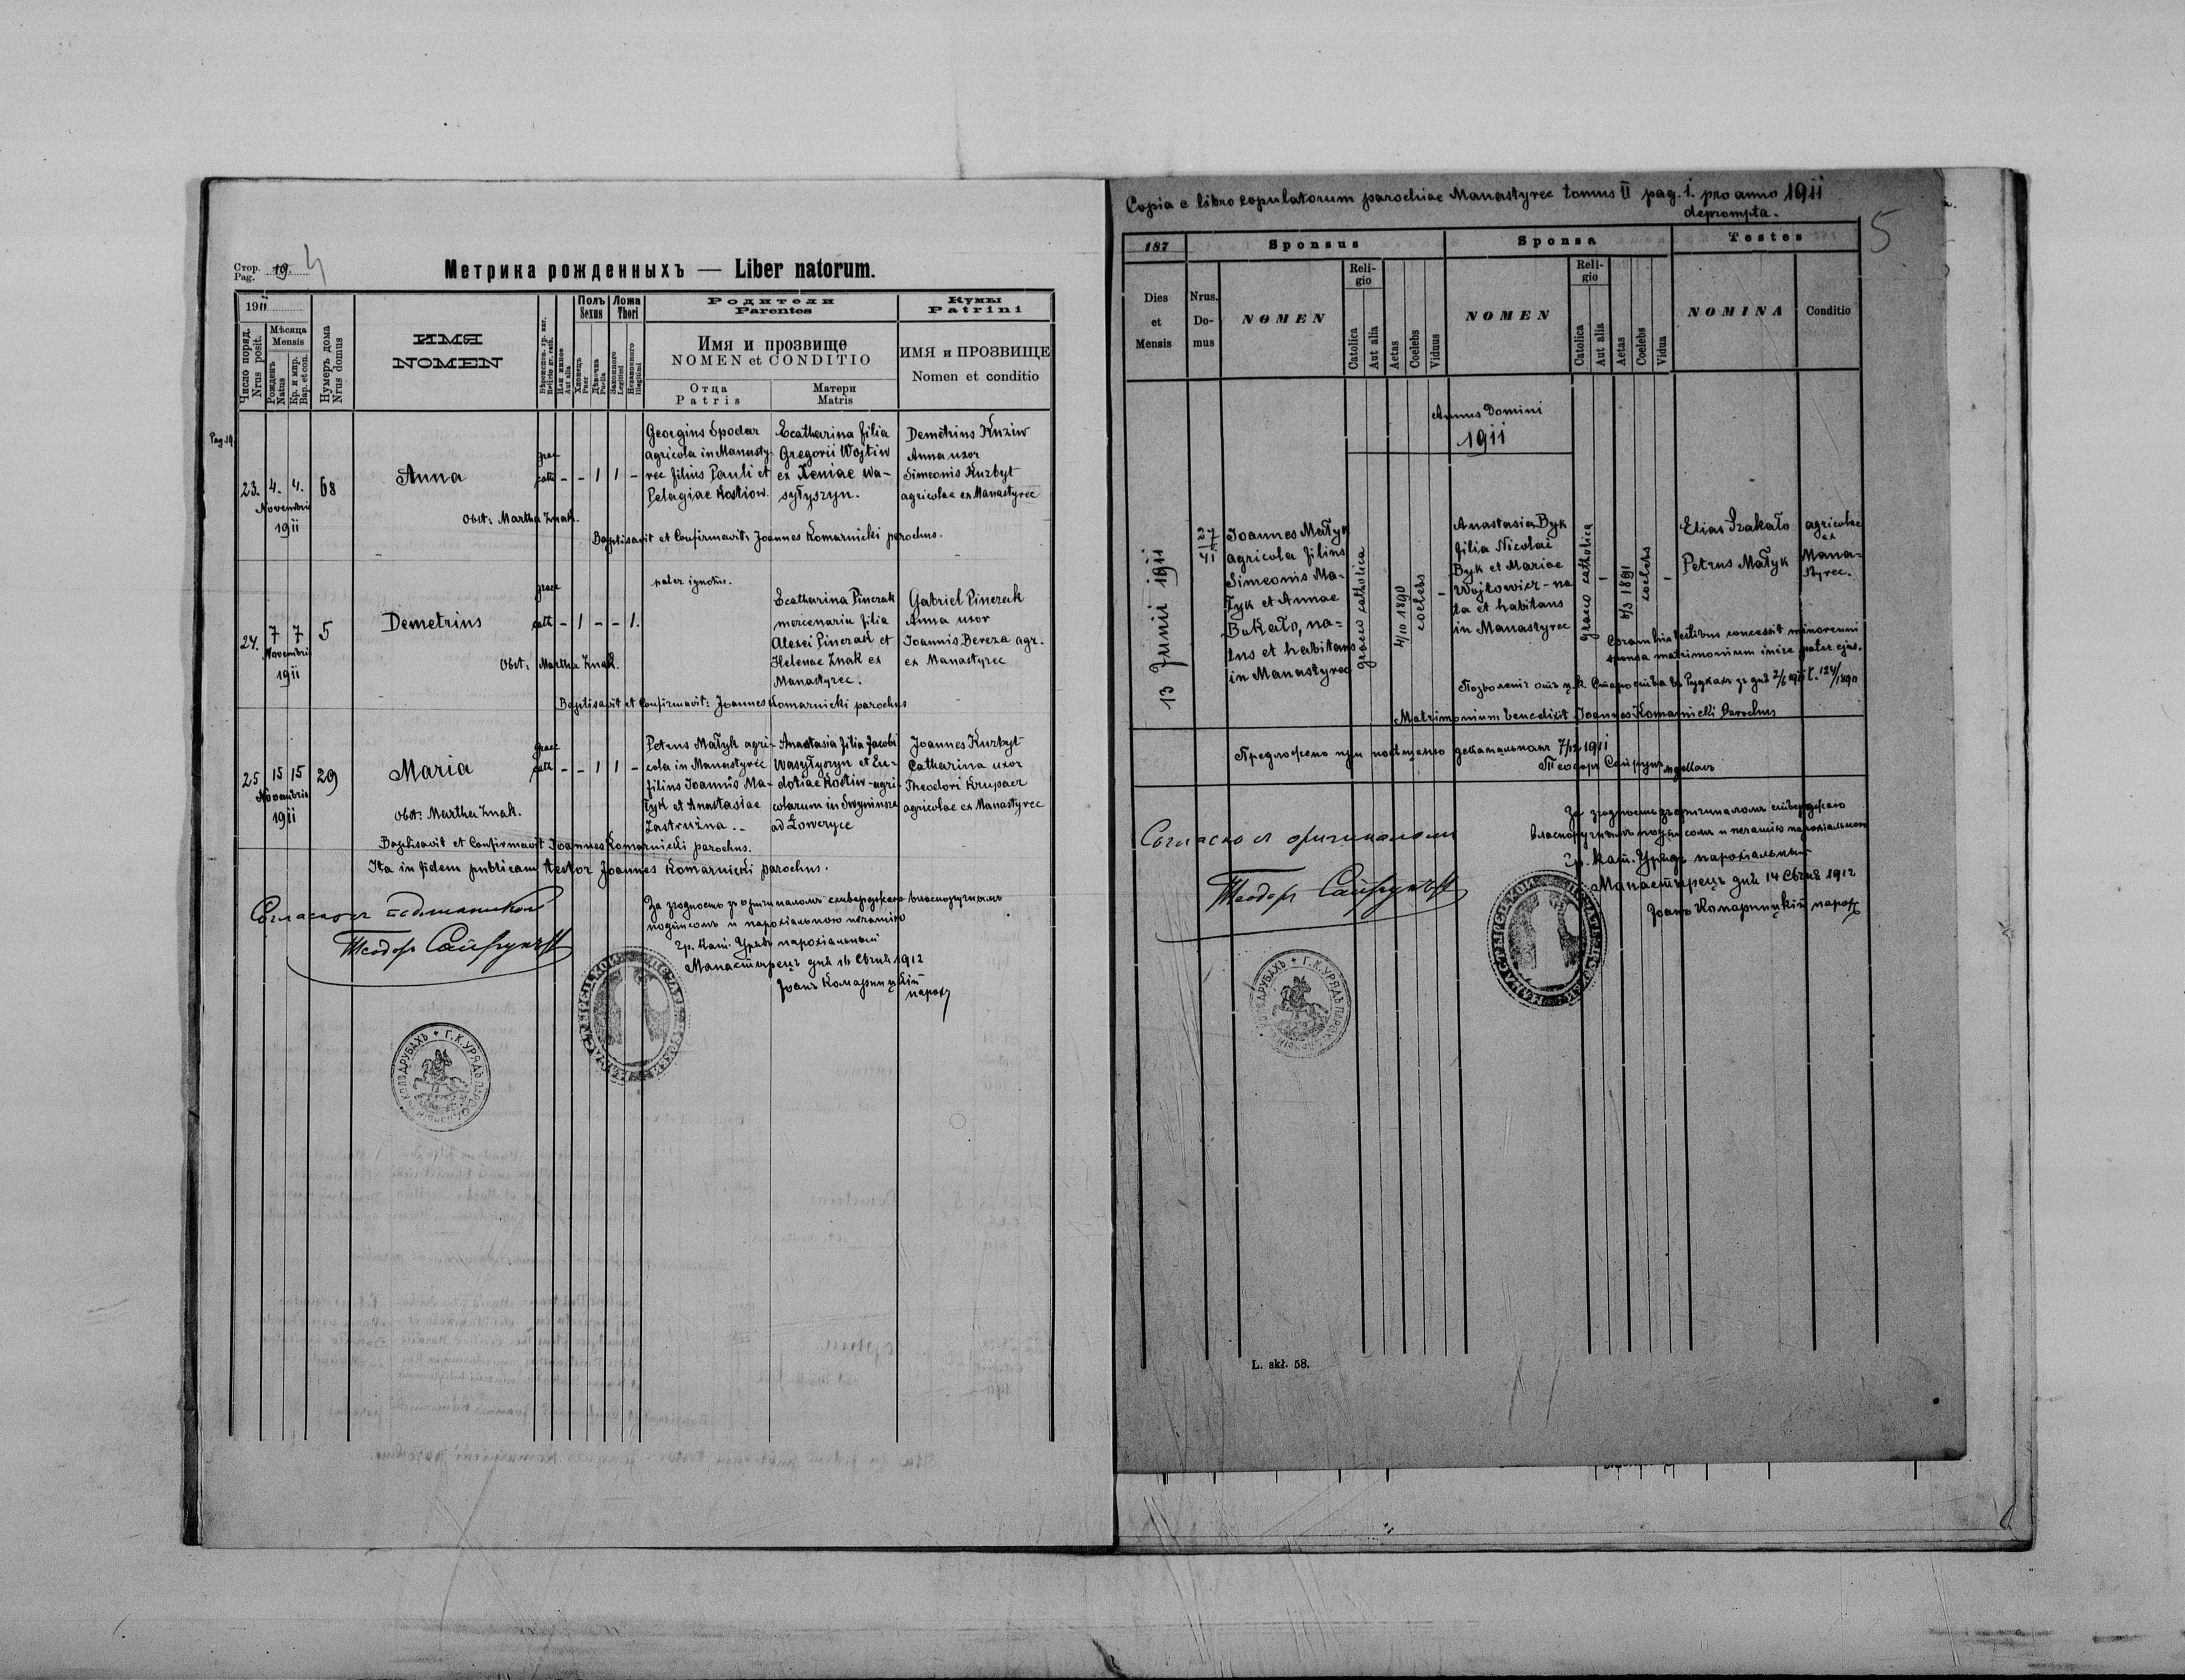 Стор. Pag. 19. 4
Метрика рожденныхъ — Liber natorum.
1911
Число поряд. Nrus posit.
Мѣсяца Mensis
Рожденъ Natus
Кр. и мир. Bap. et con.
Нумеръ дома Nrus domus
ИМЯ
NOMEN
Или инное Aut alia
Полъ Sexus
Хлопецъ Puer
Дѣвочка Puella
Ложа Thori
Законного Legitimi
Незаконного Illegitimi
Родители
Parentes
Имя и прозвище
NOMEN et CONDITIO
Отца
Patris
Матери
Matris
Кумы
Patrini
ИМЯ и ПРОЗВИЩЕ
Nomen et conditio
Pag 19
23. 4. 4. 68 Anna graec cath - - 1 1 -
Novembris
1911
Georgius Spodar
agricola in Manasty-
rec filius Pauli et
Pelagiae Kostiow.
Ecatharina filia
Gregorii Wojtiw
ex Xeniae Wa-
syłyszyn.
Demetrius Kuziw
Anna uxor
Simeonis Kuzbyt
agricolae ex Manastyrec
Obst: Martha Znak.
Baptisavit et Confirmavit: Joannes Komarnicki parochus.
24. 7 7 5 Demetrius graec cath - 1 - - 1.
Novembris
1911
pater ignotus.
Ecatharina Pinczak
mercenaria filia
Alexei Pinczak et
Helenae Znak ex
Manastyrec.
Gabriel Pinczak
Anna uxor
Joannis Bereza agr.
ex Manastyrec
Obst: Martha Znak.
Baptisavit et Confirmavit: Joannes Komarnicki parochus
25 15 15 29 Maria graec cath - - 1 1 -
Novembris
1911
Petrus Małyk agri-
cola in Manastyrec
filius Joannis Ma-
łyk et Anastasiae
Zastružna.-
Anastasia filia Jacobi
Wasyłyszyn et Eu-
dotiae Kostiw-agri-
colarum in
ad
Joannes Kuzbyt
Catharina uxor
Theodori
agricolae ex Manastyrec
Obst: Martha Znak.
Baptisavit et Confirmavit Joannes Komarnicki parochus.
Ita in fidem publicam testor Joannes Komarnicki parochus.
За згодность зъ оригиналомъ стверджаю власноручнымъ
подписомъ и парохіальною печатію
Гр. кат. Урядъ парохіальный
Манастырецъ дня 16 1912
Іоанъ Комарницкій
парох
Copia e libro copulatorum parochiae Manastyrec tomus II pag. 1. pro anno 1911
deprompta.
5
187
Sponsus
Sponsa
Testes
Dies
et
Mensis
Nrus.
Do-
mus
NOMEN
Reli-
gio
Catolica
Aut alia
Aetas
Coelebs
Viduus
NOMEN
Reli-
gio
Catolica
Aut alia
Aetas
Coelebs
Vidua
NOMINA
Conditio
Annus Domini
1911
13 Junii 1911
Joannes Małyk
agricola filius
Simeonis Ma-
łyk et Annae
Bakało, na-
tus et habitans
in Manastyrec
graeco catholica
4/10 1890
coelebs
-
Anastasia Byk
filia Nicolai
Byk et Mariae
Wojtowicz - na
ta et habitans
in Manastyrec
graeco catholica
-
6/3 1891
coelebs
-
Elias Szakało
Petrus Małyk
agricolae
ex
Mana-
styrec.
Coram his testibus concessit minorenni
sponsa matrimonium inire pater ejus.
Matrimonium benedixit Joannes Komarnicki Parochus
7/12 1911
Согласно с оригиналом
За згодность зъ оригиналомъ стверджаю
власноручнымъ подписомъ и печатію парохіальною
Гр. кат. Урядъ парохіальный
Манастырецъ дня 14 1912
Іоанъ Комарницкій парох
L. skł. 58.